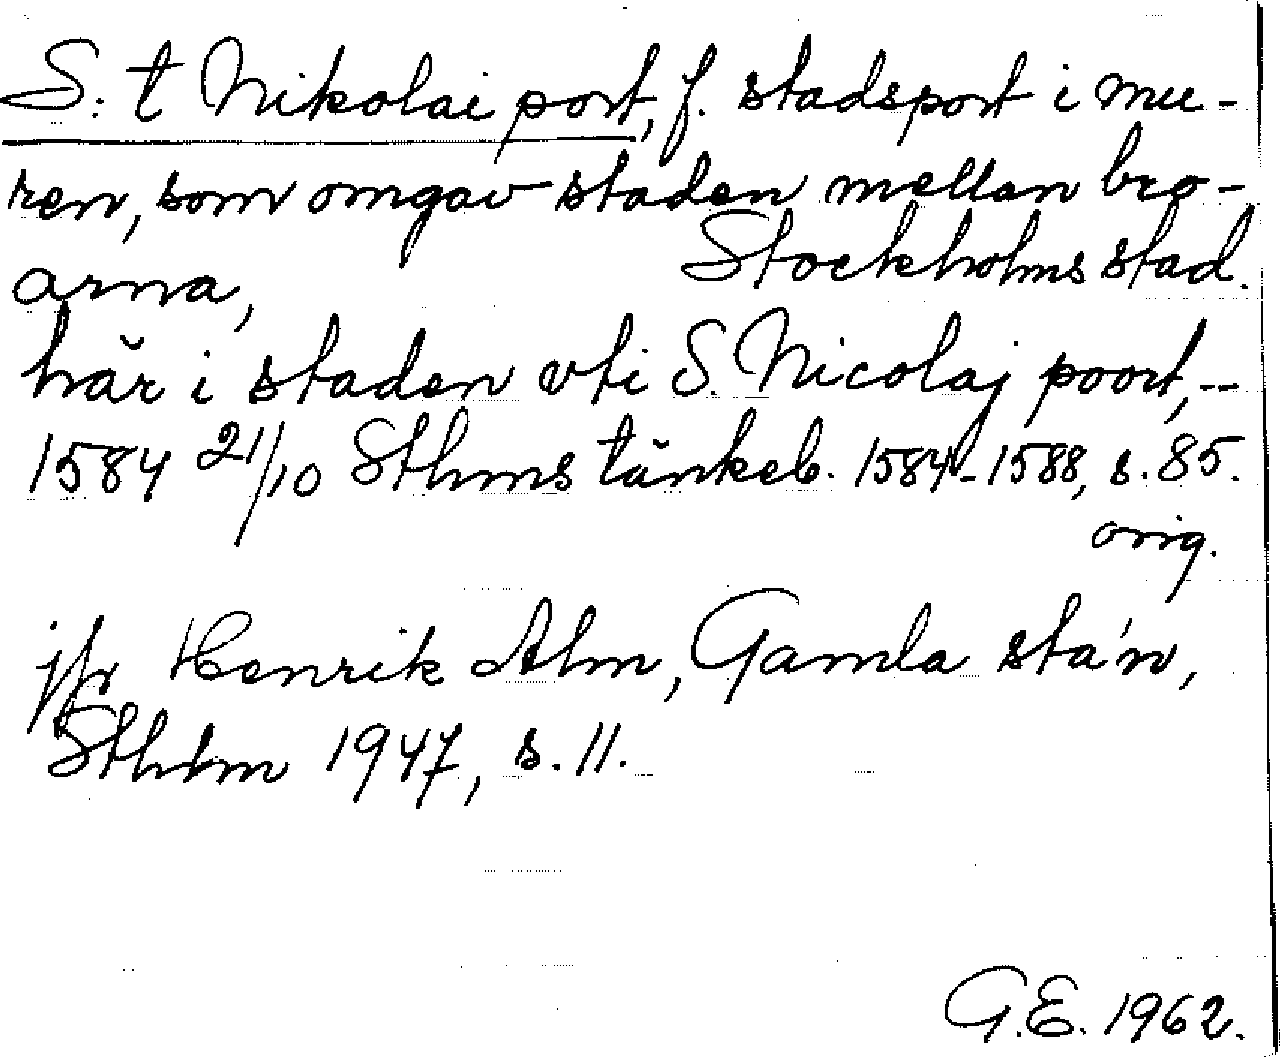 S:t Nikolai port, f. stadsport i mu-
ren, som omgav staden mellan bro-
arna, Stockholms stad.
här i staden vti S. Nicolaj poort, --
1584 21/10 Sthms tänkeb. 1584-1588, s. 85.
orig.
jfr Henrik Alm, Gamla sta'n,
Sthlm 1947, s. 11.
G.E. 1962.